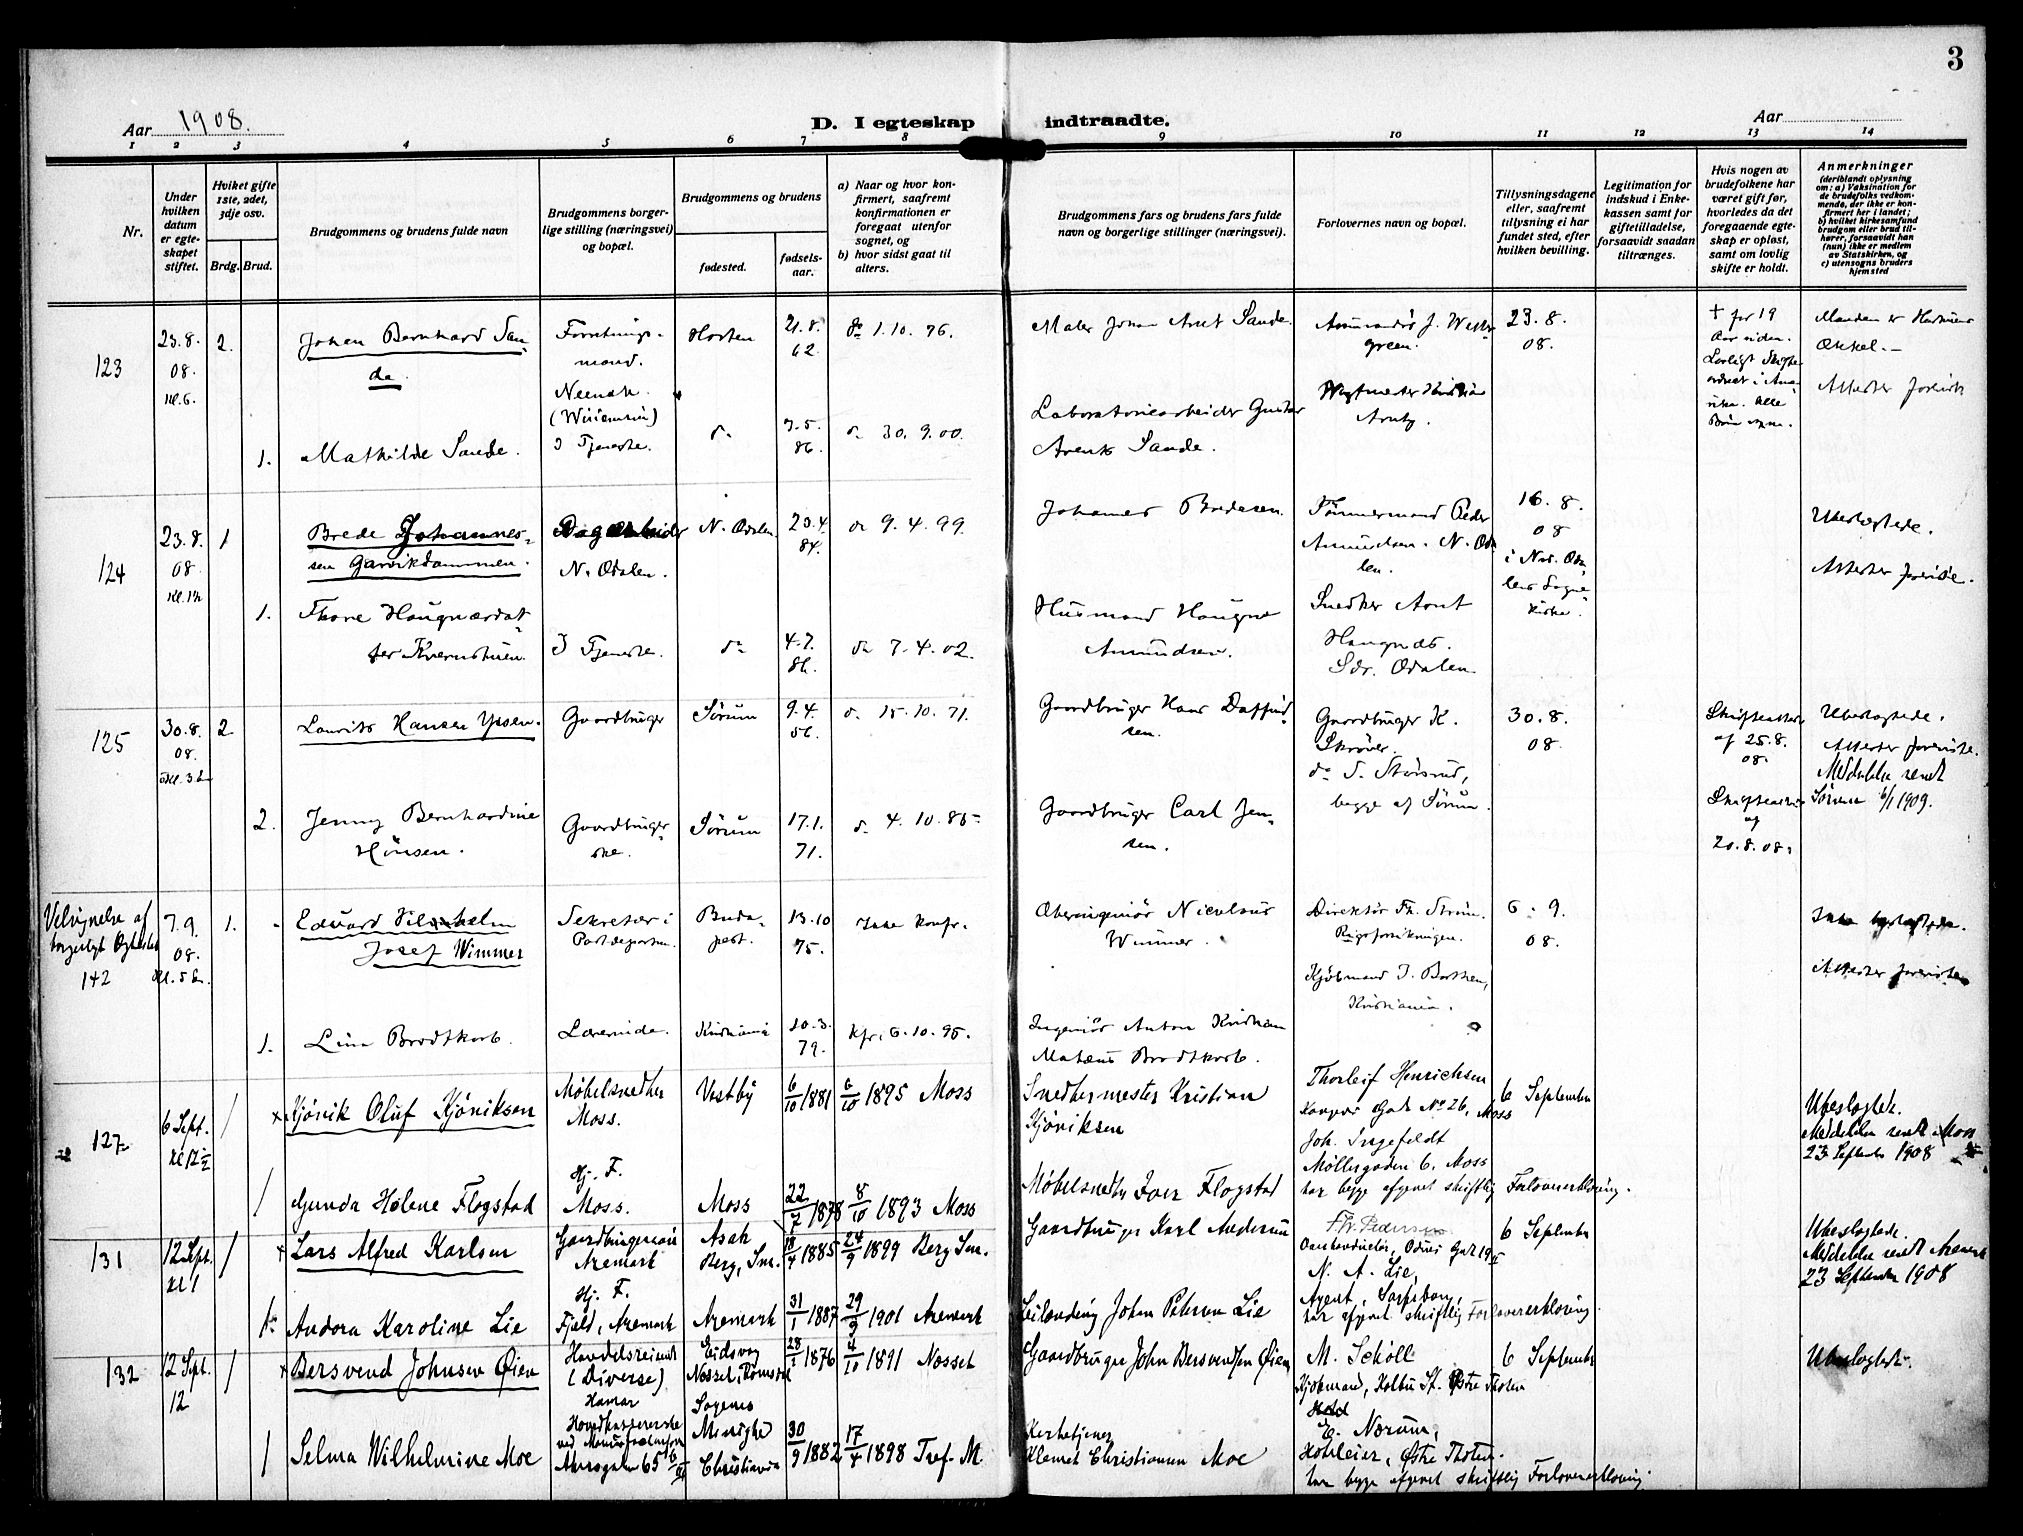 3
Aar 1908.
D. I egteskap indtraadte.
Aar
1 2 3 4 5 6 7 8 9 10 11 12 13 14
Nr.
Under hvilken datum er egteskapet stiftet.
Hviket gifte 1ste, 2det, 3dje osv.
Brdg. Brud.
Brudgommens og brudens fulde navn
Brudgommens borgerlige stilling (næringsvei) og bopæl.
Brudgommens og brudens
fødested.
fødselsaar.
a) Naar og hvor konfirmert, saafremt konfirmationen er foregaat utenfor sognet, og
b) hvor sidst gaat til alters.
Brudgommens fars og brudens fars fulde navn og borgerlige stillinger (næringsvei).
Forlovernes navn og bopæl.
Tillysningsdagene eller, saafremt tillysning ei har fundet sted, efter hvilken bevilling.
Legitimation for indskud i Enkekassen samt for giftetilladelse, forsaavidt saadan tiltrænges.
Hvis nogen av brudefolkene har været gift før, hvorledes da det foregaaende egteskap er opløst, samt om lovlig skifte er holdt.
Anmerkninger
(deriblandt oplysning om: a) Vaksination for de brudefolks vedkommende, der ikke er konfirmert her i landet; b) hvilket kirkesamfund brudgom eller brud tilhører, forsaavidt han (hun) ikke er medlem av Statskirken, og c) utensogns bruders hjemsted
123
23.8.
08.
Kl. 6.
2.
Johan Bernhard Sande
Forretningsmand.
Horten
21.8.
62.
do 1.10.76.
Maler Johan Arnt Sande.
23.8.
08.
+ for 19
Aar siden.
Manden er Hustruens
Onkel.
Attester foreviste
1.
Mathilde Sande.
I Tjeneste.
do
86.
do 30.9.00.
Laboratoriearbeider Gustav
Arents Sande.
124
23.8.
08.
1
Brede Johannessen Garvikdammen.
Dagarbeider
N. Odalen.
N. Odalen
23.4.
84.
do 9.4.99.
Johannes Bredesen.
Tømmermand Peder
Amundsen. N. Odalen.
16.8.
08
i Nor. Odalens Sognekirke.
Ubeslægtede.
Attester foreviste.
1.
Thore Haugnærdatter Kvernstuen.
I Tjeneste.
do
4.7.
86.
do 7.4.02.
Husmand Haugne
Amundsen.
Snedker Arnt
Haugnæs.
Sdr. Odalen
125
30.8.
08.
2
Laurits Hansen Ypsen.
Gaardbruger
Sørum
9.4.
56.
do 15.10.71.
Gaardbruger Hans Daffindsen.
Gaardbruger K.
Skrøver.
do S. Størsrud,
begge af Sørum.
30.8.
08.
Skifteattest
af 25.8.
08.
Ubeslægtede.
Attester foreviste.
Meddelelse sendt
Sørum 6/1 1909.
2.
Jenny Bernhardine
Hansen.
Gaardbrugerske.
Sørum
17.1.
71.
do 4.10.85
Gaardbruger Carl Jensen.
Skifteattest
af
20.8.08.
Velsignelse af
borgerligt Ægteskab
142
7.9.
08.
Kl. 5
1.
Edvard Vilhelm
Josef Wimmer
Sekretær i
Budapest.
13.10
75.
Ikke konfr.
Overingeniør Nicolaus
Wimmer.
Direktør Th. Strøm.
Kjøbmand J. Barthen,
Kristiania.
6.9.
08.
Ikke beslægtede.
Attester foreviste
1.
Lina Brodtkorb.
Lærerinde.
Kristiania
20.3.
79.
kfr. 6.10.95.
Ingeniør Anton Kristian
Mateus Brodtkorb.
127
6 Sept.
Kl 12 1/2
1
Kjønik Oluf Kjøniksen
Møbelsnedker
Moss.
Vestby
6/10 1881
6/10 1895 Moss
Snedkermester Kristian
Kjøniksen
Thorleif Henrichsen
Kongens Gade No 26, Moss
Joh. Ingefeldt
Møllergaden 6. Moss
har begge afgivet skriftlig Forlovererklæring.
6 September
Ubeslægtede.
Meddelelse sendt Moss
23 September 1908
1
Gunda Helene Flogstad
Hj. F.
Moss.
Moss
22/7 1878
8/10 1893 Moss
Møbelsnedker Iver Flogstad
131
12 Sept.
Kl 1
1
Lars Alfred Karlsen
Aremark
Asak
Berg, Sm.
18/4 1885
24/9 1899 Berg Sm.
Gaardbruger Karl Andersen
Th. Pedersen
N. A. Lie,
Agent, Sarpsborg,
har afgivet skriftlig Forlovererklæring.
6 September
Ubeslægtede.
Meddelelse sendt Aremark
23 September 1908
1
Andora Karoline Lie
Hj. F.
Fjeld, Aremark
Aremark
31/1 1887
29/9 1901 Aremark
Leilending Johan Petersen Lie
132
12 Sept.
12
1
Bersvend Johnsen Øien
Handelsreisende
(Diverse)
Hamar
Eidsvaag
Nesset, Romsdal
28/1 1876
4/10 1891 Nesset
Gaardbruger John Bersvendsen Øien
M. Schöll
Kjøbmand, Kolbu St. Østre Thoten
E. Norum,
Hotelleier, Østre Thoten.
har begge afgivet skriftlig Forlovererklæring.
6 September
Ubeslægtede.
1
Selma Wilhelmine Moe
Sagenes
Menighed
Christiania
30/9 1882
17/4 1898 Tref. M.
Kirketjener
Klemet Christiansen Moe